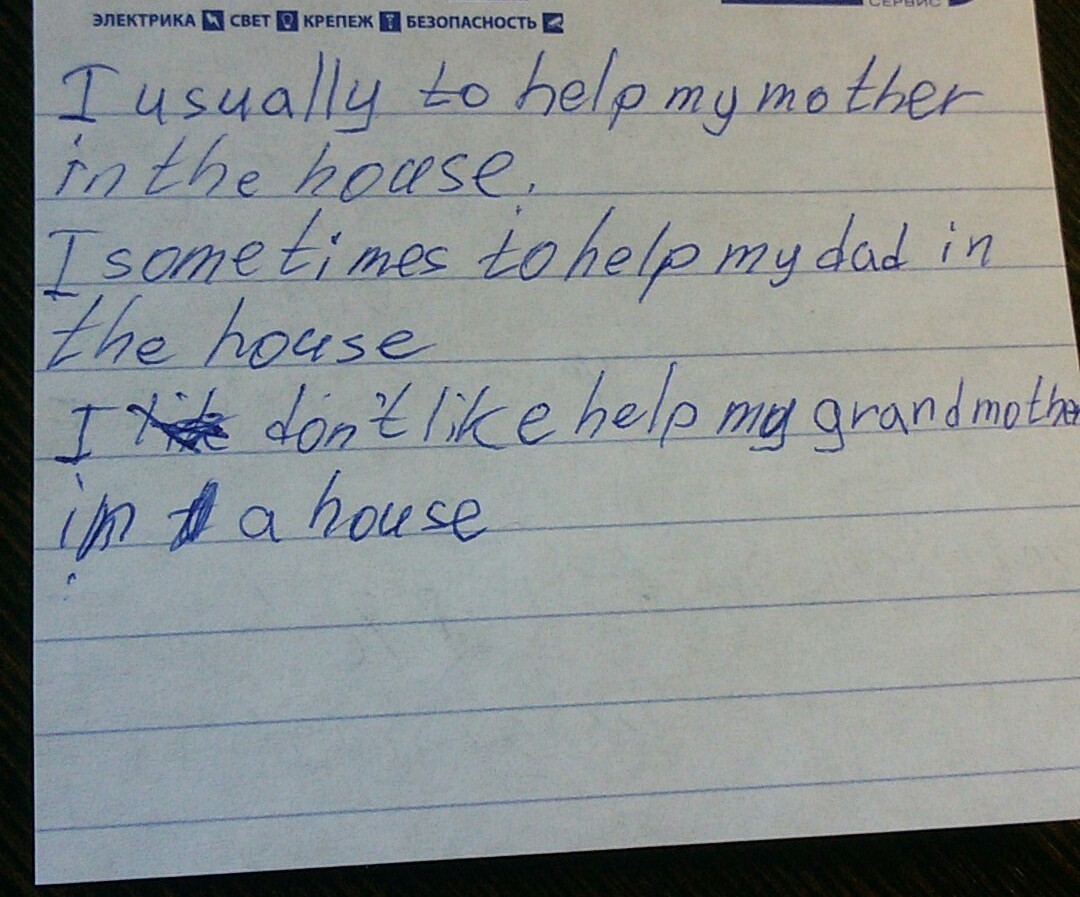 ЭЛЕКТРИКА СВЕТ КРЕПЕЖ БЕЗОПАСНОСТЬ
СЕРВИС
I usually to help my mother
in the house.
I sometimes to help my dad in
the house
I don't like help my grandmother
in a house